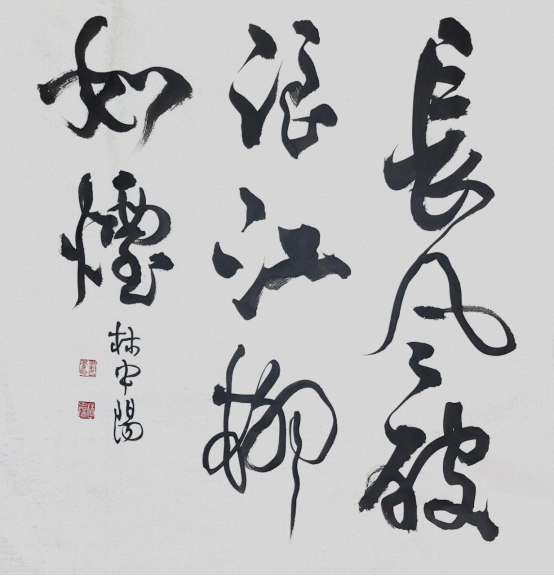 長風破
浪江柳
如煙
林中陽